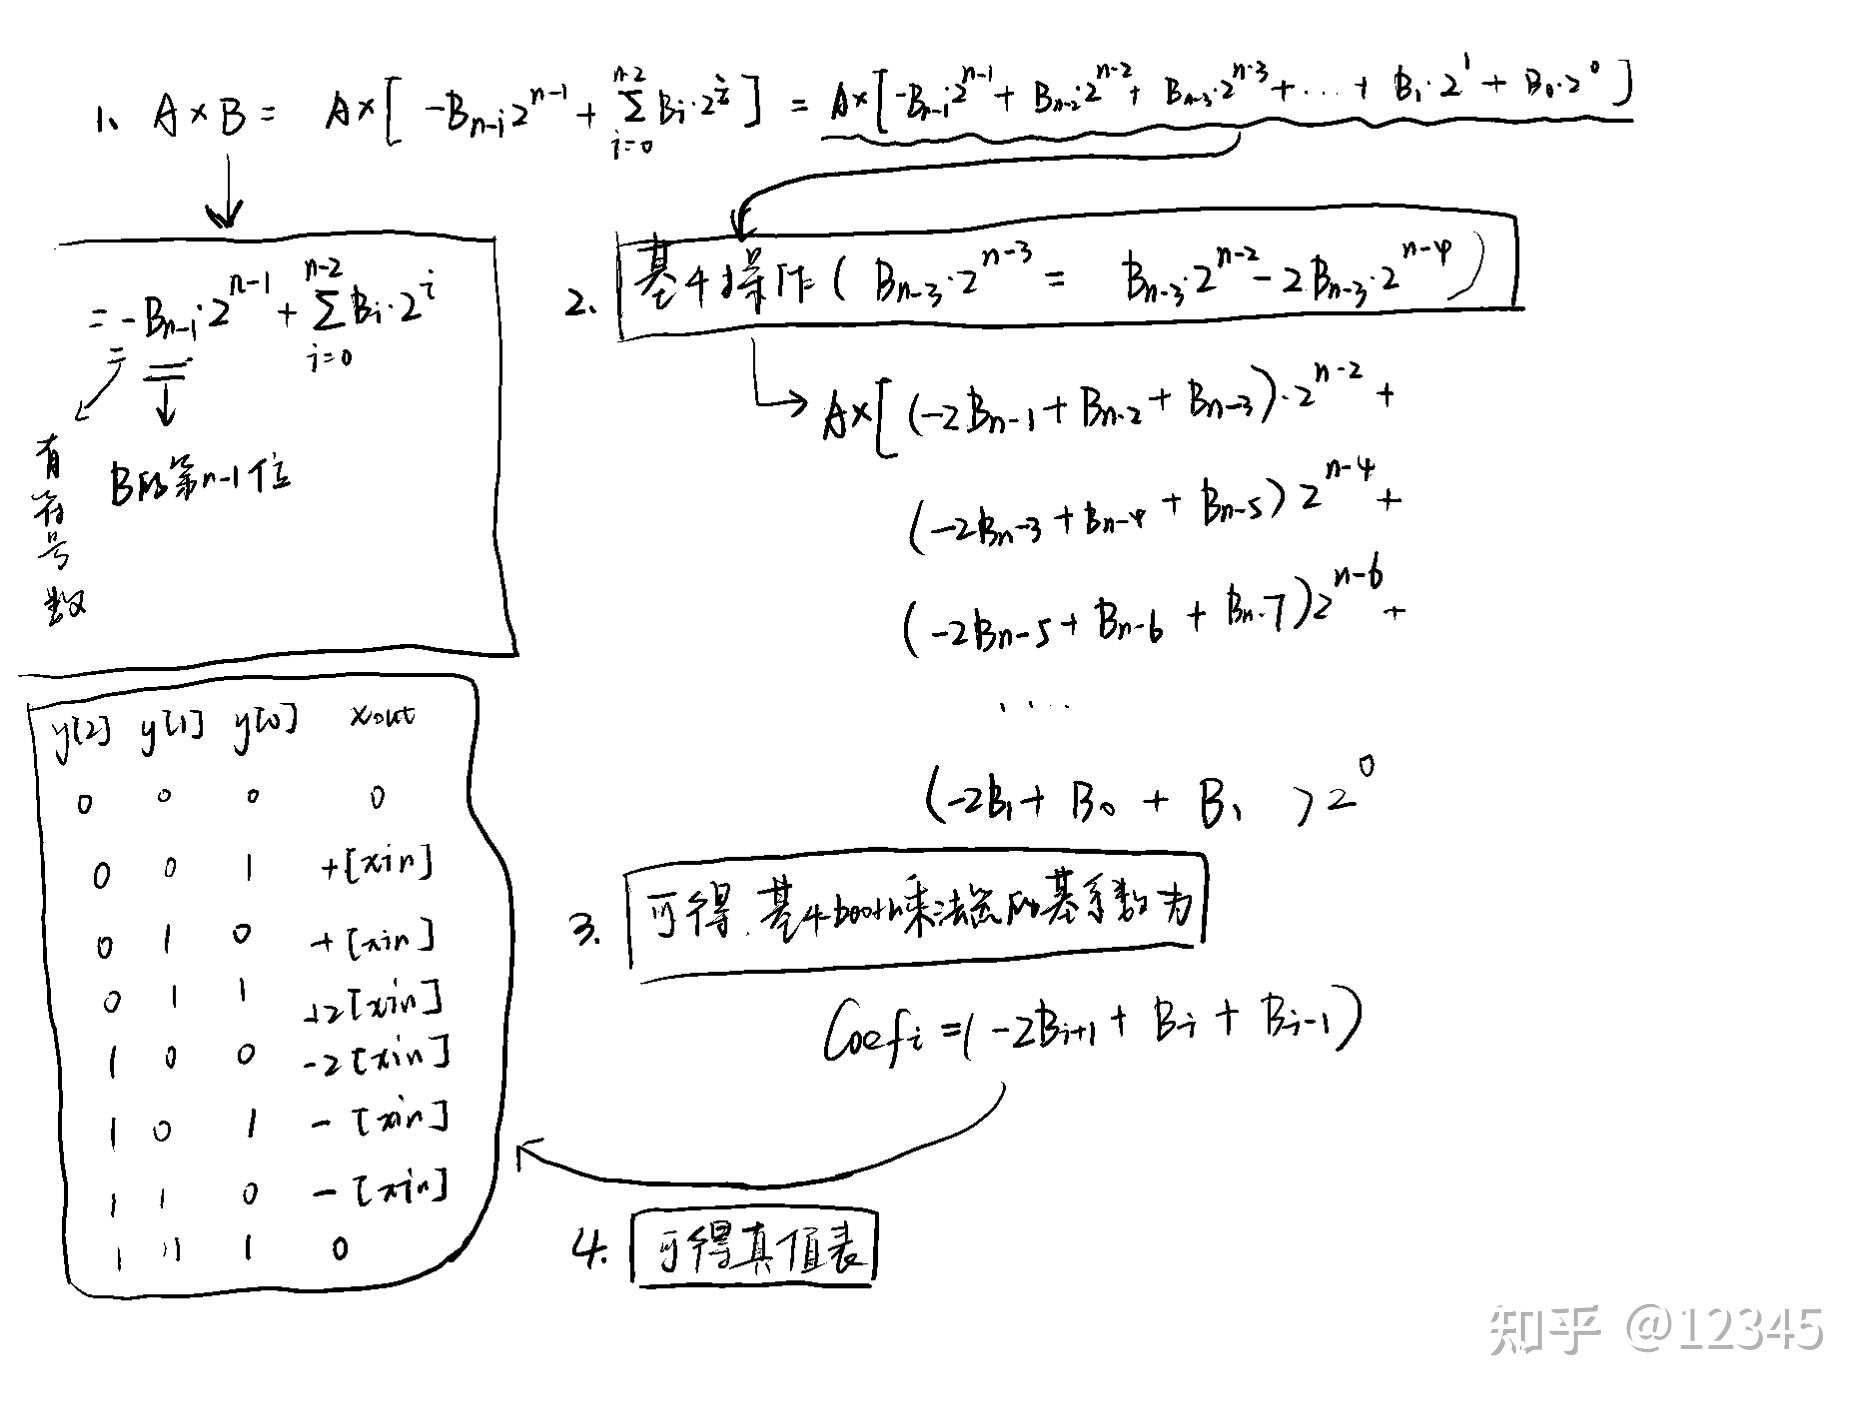 1、 A × B = A×[ -Bn-1·2^n-1 + ∑(i=0, n-2) Bi·2^i ] = A×[-Bn-1·2^n-1 + Bn-2·2^n-2 + Bn-3·2^n-3 + ... + B1·2^1 + B0·2^0 ]
= -Bn-1·2^n-1 + ∑(i=0, n-2) Bi·2^i
有符号数
B的第n-1位
2. 基4操作 ( Bn-3·2^n-3 = Bn-3·2^n-2 - 2Bn-3·2^n-4 )
A×[ (-2Bn-1 + Bn-2 + Bn-3)·2^n-2 +
(-2Bn-3 + Bn-4 + Bn-5) 2^n-4 +
(-2Bn-5 + Bn-6 + Bn-7) 2^n-6 +
....
(-2B1 + B0 + B1 ) 2^0
3. 可得.基4booth乘法器的基系数为
Coefi = (-2Bi+1 + Bi + Bi-1)
4. 可得真值表
y[2] y[1] y[0] xout
0 0 0 0
0 0 1 +[xin]
0 1 0 +[xin]
0 1 1 +2[xin]
1 0 0 -2[xin]
1 0 1 -[xin]
1 1 0 -[xin]
1 1 1 0
知乎 @12345